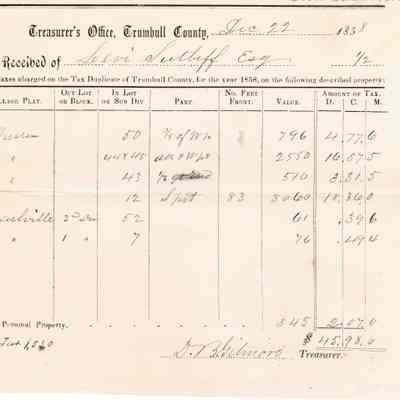 Treasurer's Office, Trumbull County, Dec 22 1858
Received of Levi Sutliff Esq 1/2
axes charged on the Tax Duplicate of Trumbull County, for the year 1858, on the following described property:
LLAGE PLAT. OUT LOT OR BLOCK. IN LOT OR SUB DIV PART NO. FEET FRONT. VALUE. AMOUNT OF TAX. D. C. M.
50 796 4.77.6
" 44&45 2550 16.57.5
" 43 510 3.31.5
12 Spt 83 3060 18.36.0
52 61 .39.6
" 1 " 7 76 .49.4
Personal Property. 345 2.07.0
$45.98.0
D. B. Gilmore Treasurer.